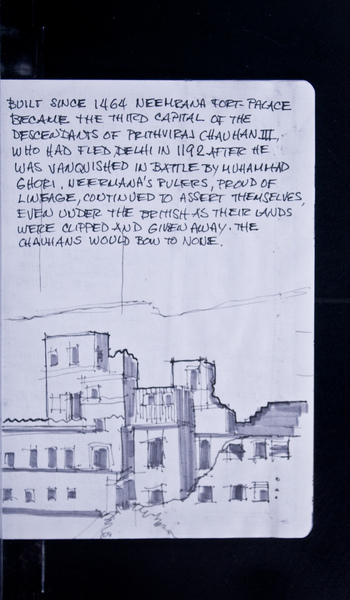 BUILT SINCE 1464 NEEMRANA FORT-PALACE
BECAME THE THIRD CAPITAL OF THE
DESCENDANTS OF PRITHVIRAJ CHAUHAN III,
WHO HAD FLED DELHI IN 1192 AFTER HE
WAS VANQUISHED IN BATTLE BY MUHAMMAD
GHORI. NEERMANA'S RULERS, PROUD OF
LINEAGE, CONTINUED TO ASSERT THEMSELVES,
EVEN UNDER THE BRITISH AS THEIR LANDS
WERE CLIPPED AND GIVEN AWAY. THE
CHAUHANS WOULD BOW TO NONE.